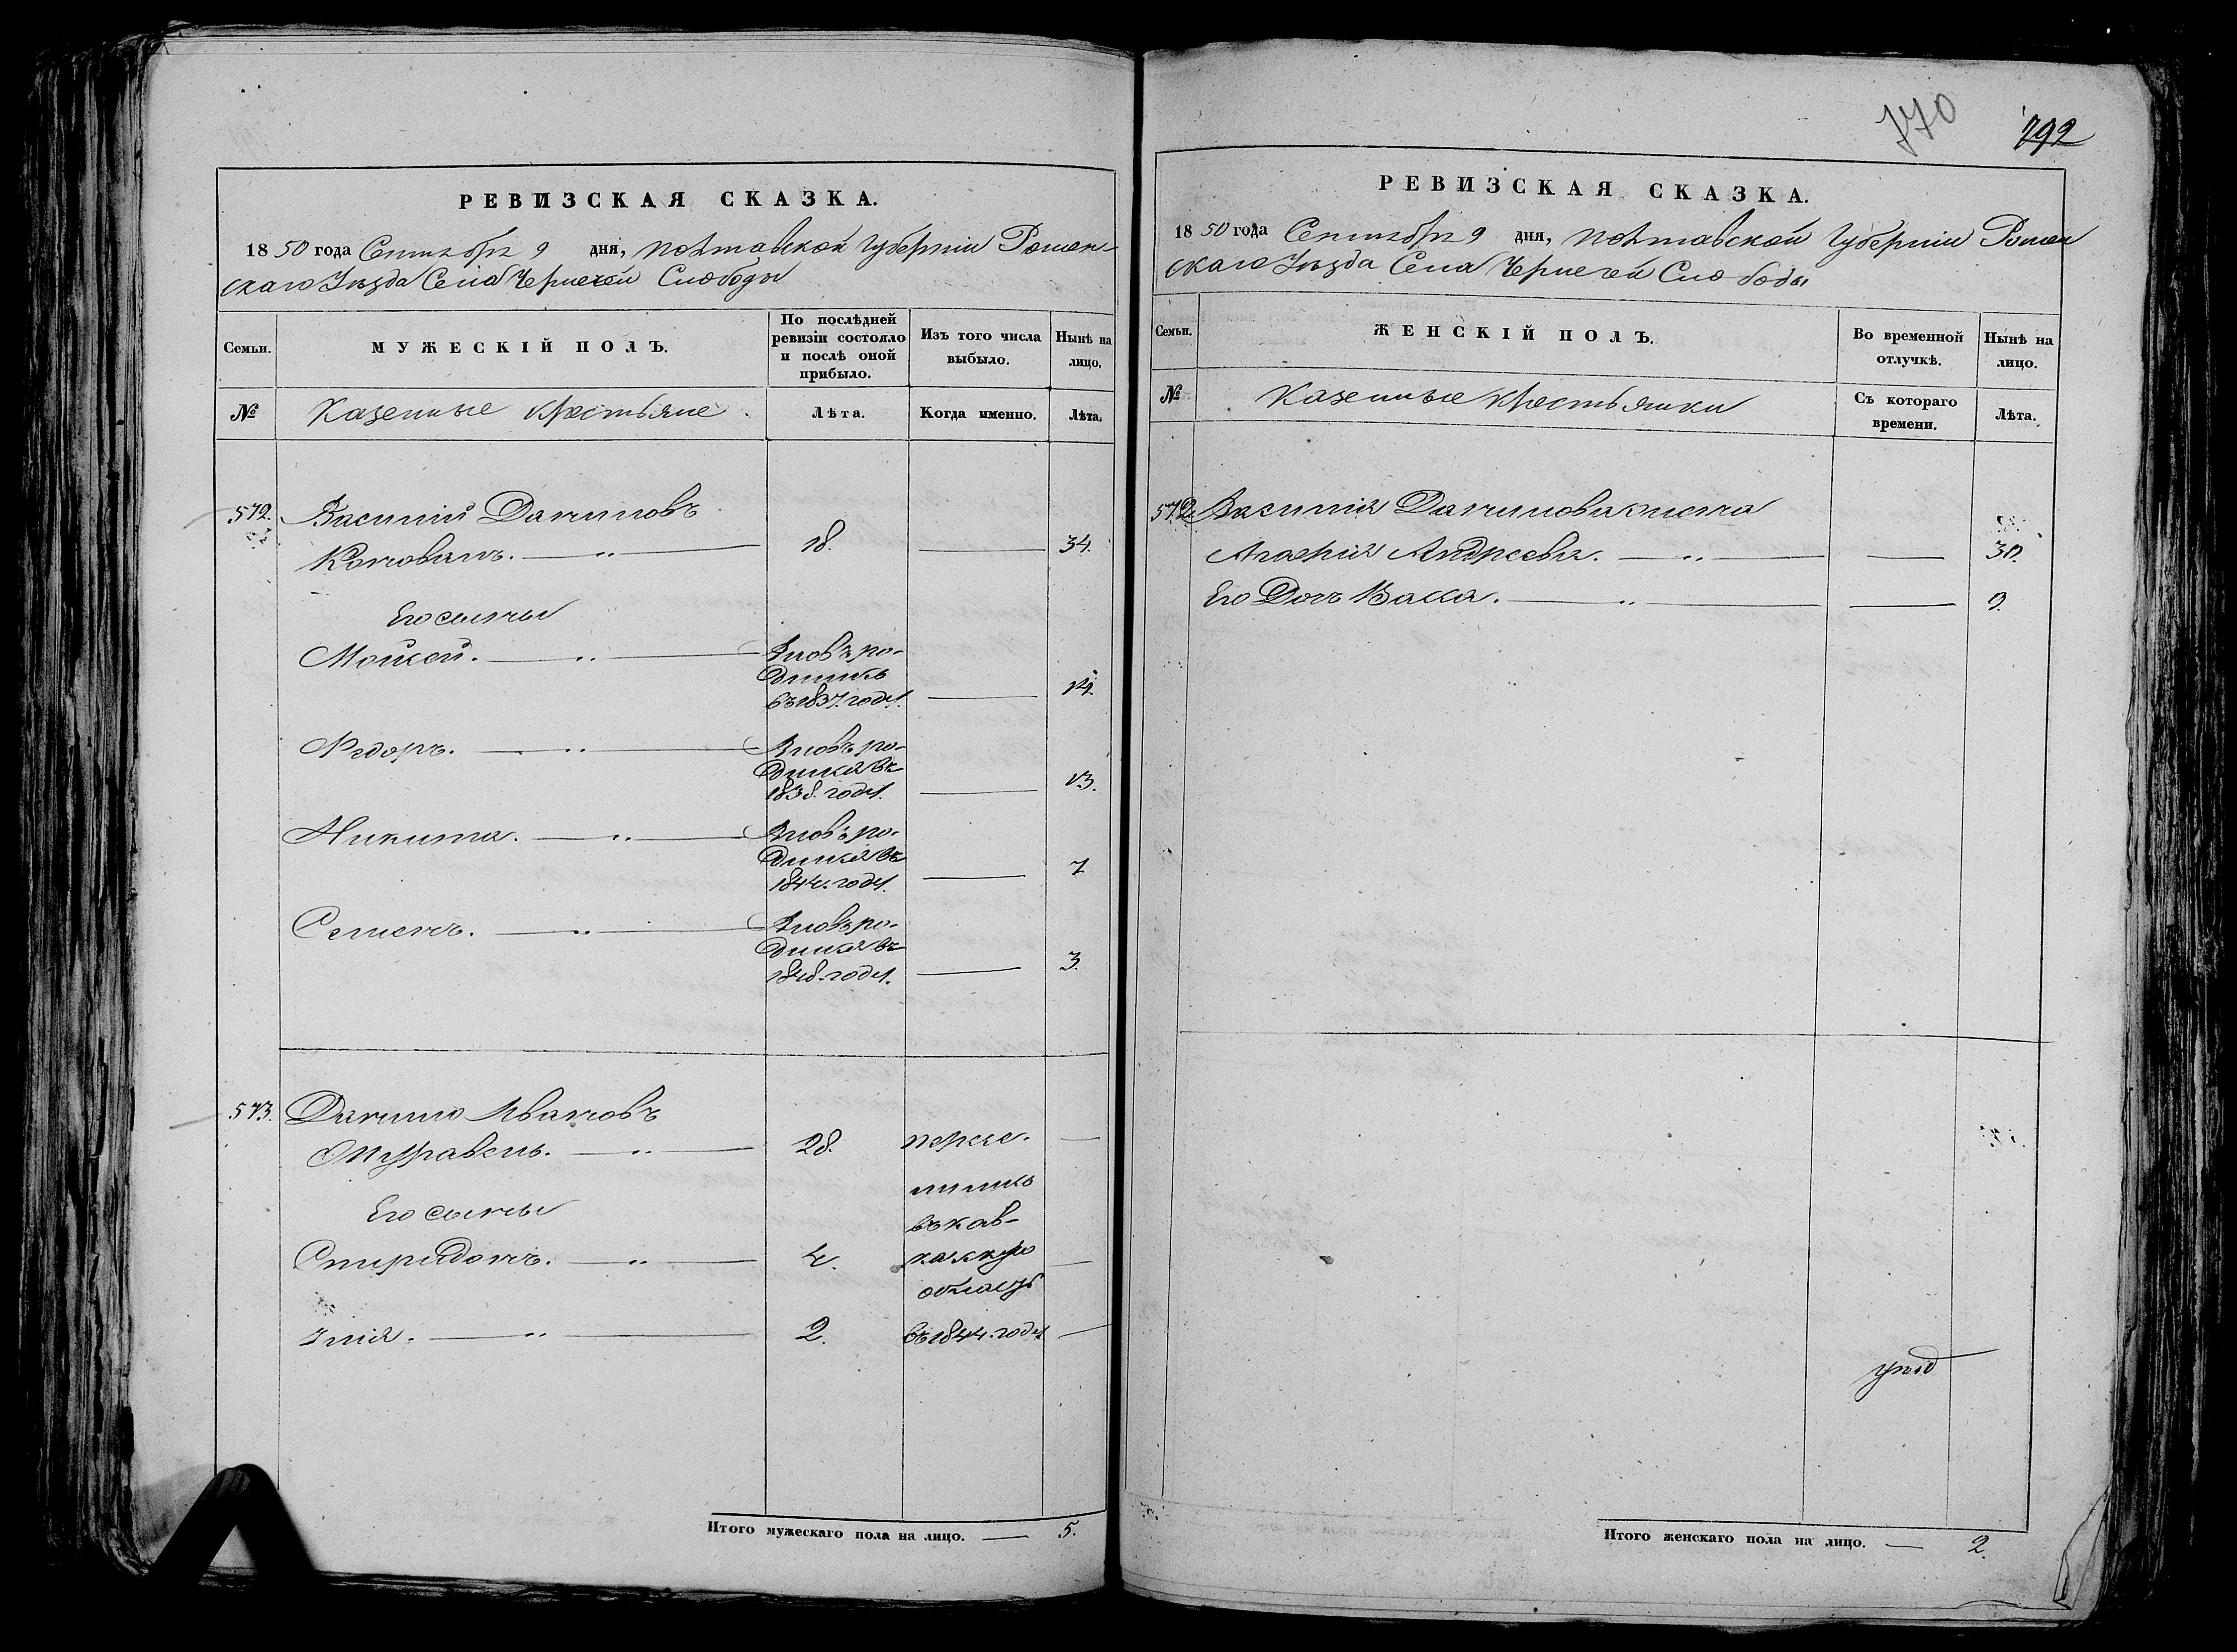 РЕВИЗСКАЯ СКАЗКА.
1850 года Сентября 9 дня, Полтавской Губернiи Ромен-
скаго Уѣзда Села Чернечей Слободы
Семьи.
МУЖЕСКIЙ ПОЛЪ.
По послѣдней ревизiи состояло и послѣ оной прибыло.
Изъ того числа выбыло.
Нынѣ на лицо.
№
Казенные крестьяне
Лѣта.
Когда именно.
Лѣта.
572. Василiй Даниловъ
Коновалъ. — „ — 18. — 34.
Его сыны
Мойсей. — „ — Вновь ро-
дился
въ 1837. годѣ. — 14.
Федоръ. — „ — Вновь ро-
дился въ
1838. годѣ. — 13.
Никита. — „ — Вновь ро-
дился въ
1844. годѣ. — 7
Семенъ. — „ — Вновь ро-
дился въ
1848. годѣ. — 3.
573. Данило Ивановъ
Журавель. — „ — 28. пересе- —
лились
Его сыны
въ кав-
Спиридонъ. — „ — 4. казскую —
область
Илiя. — „ — 2. въ 1844. годѣ —
Итого мужескаго пола на лицо. — 5.
770
792
РЕВИЗСКАЯ СКАЗКА.
1850 года Сентября 9 дня, Полтавской Губернiи Ромен
скаго Уѣзда Села Чернечей Слободы
Семьи.
ЖЕНСКIЙ ПОЛЪ.
Во временной отлучкѣ.
Нынѣ на лицо.
№
Казенные крестьянки
Съ котораго времени.
Лѣта.
572. Василiя Данилова жена
Агафiя Андреева. — „ — — 30.
Его Дочь Васса. — „ — — 9.
Итого женскаго пола на лицо. — 2.